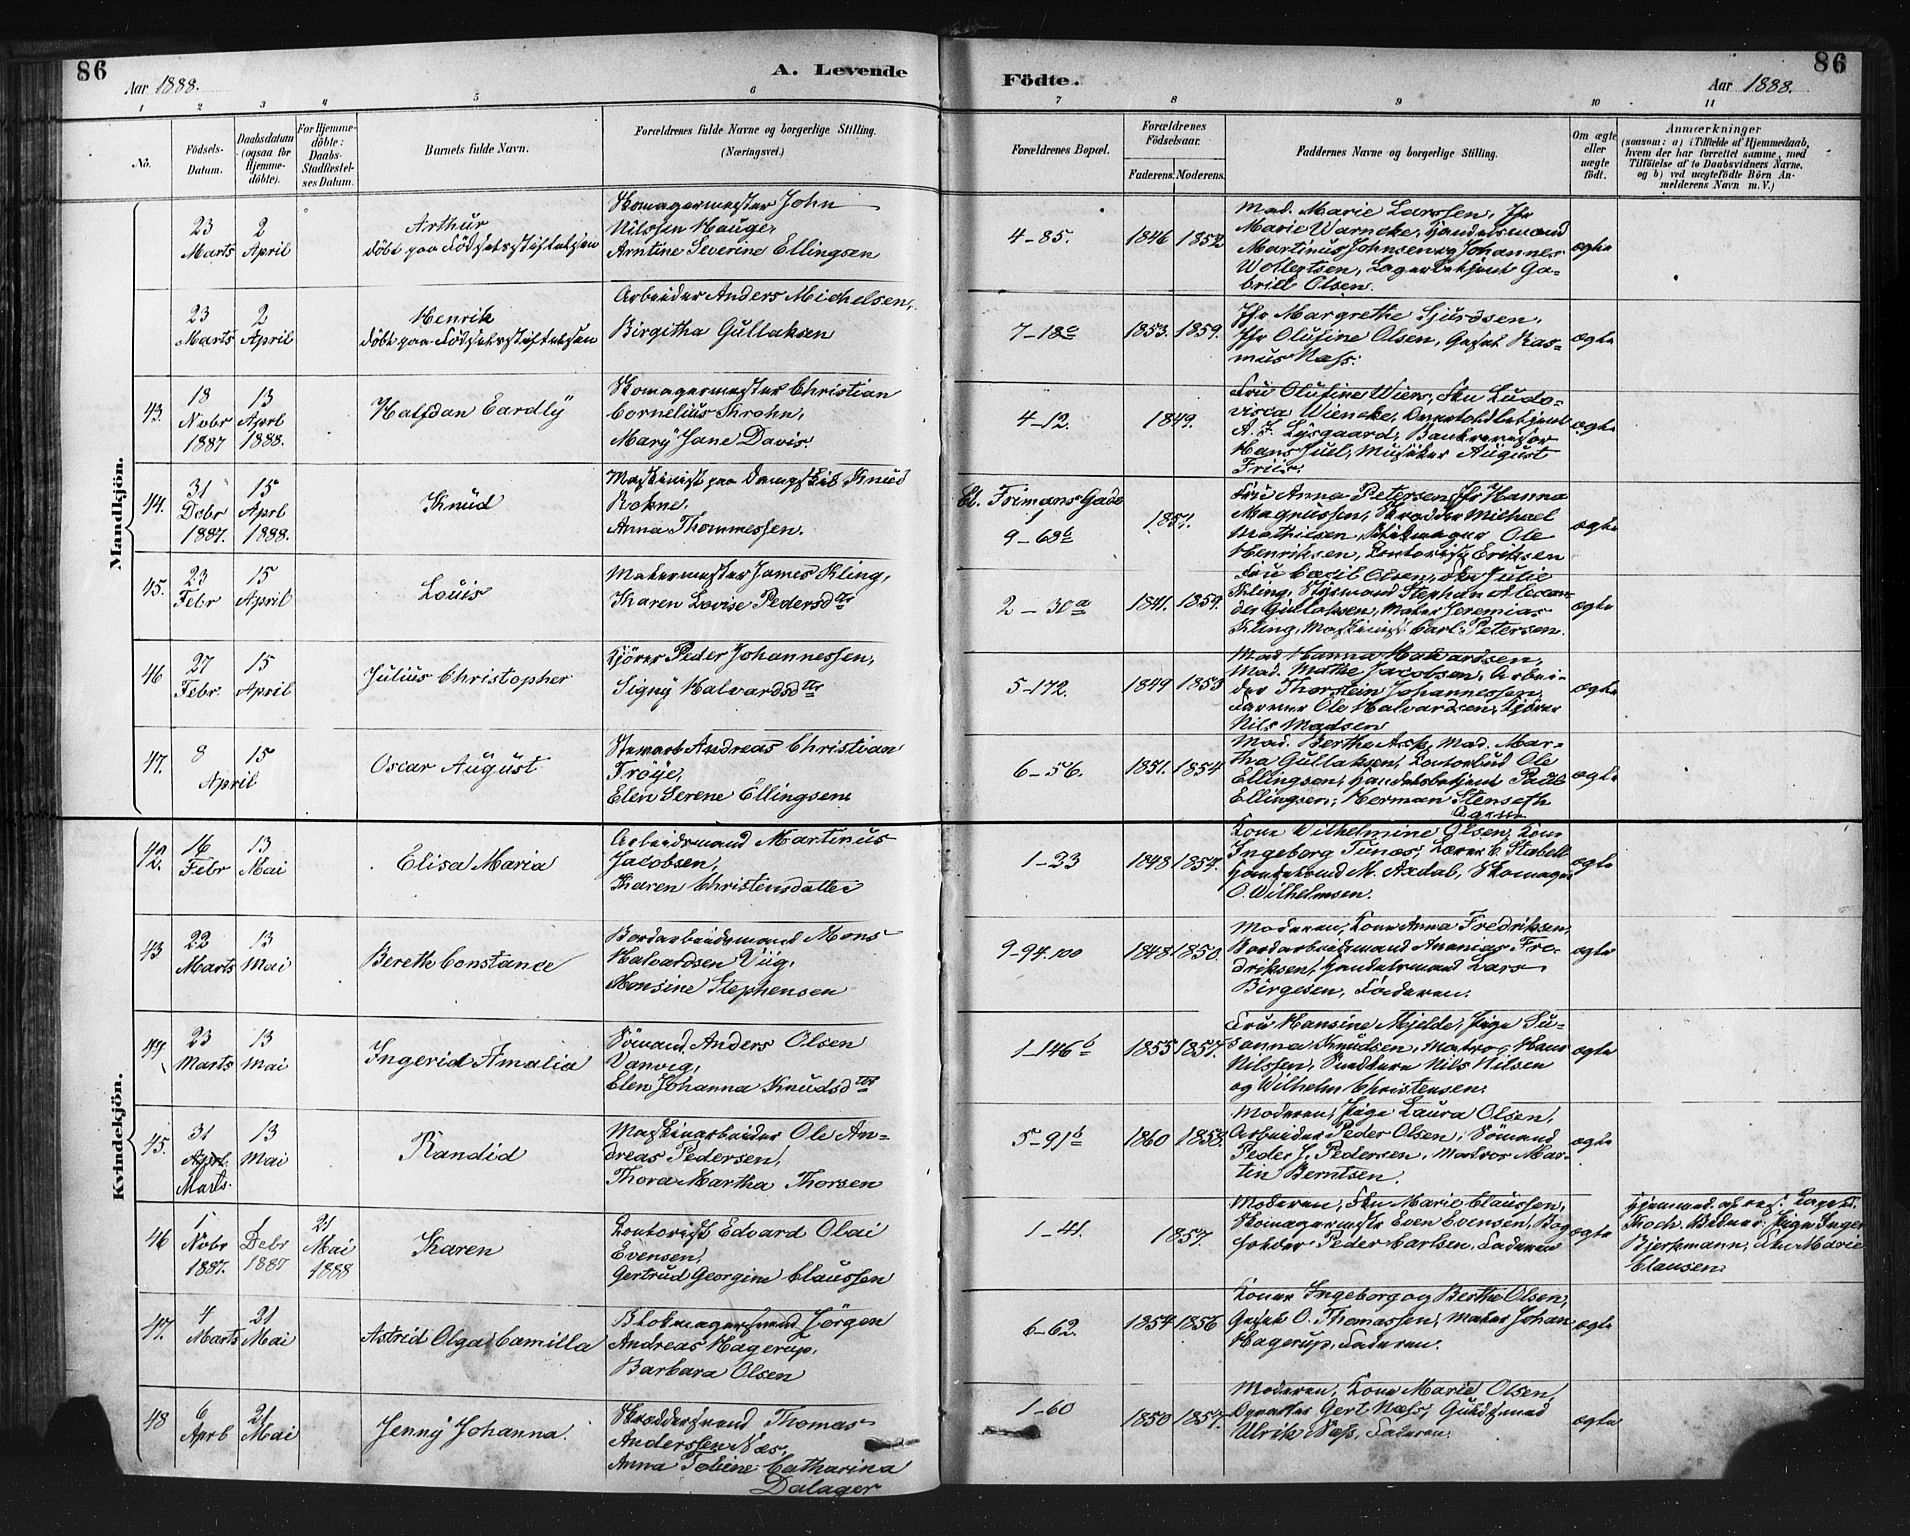 86
Aar 1888.
A. Levende
Födte.
Aar 1888.
86
1 2 3 4 5 6 7 8 9 10 11
No.
Födsels-
Datum.
Daabsdatum
(ogsaa for
Hjemme-
döbte).
For Hjemme-
döbte:
Daabs-
Stadfæstel-
ses Datum.
Barnets fulde Navn.
Forældrenes fulde Navne og borgerlige Stilling.
(Næringsvei.)
Forældrenes Bopæl.
Forældrenes
Födselsaar.
Faderens. Moderens.
Faddernes Navne og borgerlige Stilling.
Om ægte
eller
uægte
födt.
Anmærkninger
(saasom: a) i Tilfælde af Hjemmedaab,
hvem der har forrettet samme, med
Tilföielse af to Daabsvidners Navne,
og b) ved uægtefödte Börn An-
melderens Navn m. V.)
Mandkjön.
23
Marts
2
April
Arthur
döbt paa Födselsstiftelsen
Skomagermester John
Nilssen Hauge,
Arntine Severine Ellingsen
4-85.
1846 1852
Mad. Marie Larssen, Jfr
Marie Warncke, Handelsmand
Martinus Johnsen og Johannes
Wollertsen, Lagerbetjent Ga-
briel Olsen.
ægte
23
Marts
2
April
Henrik
döbt paa Födselsstiftelsen
Arbeider Anders Michelsen,
Birgitha Gullaksen
7-18c
1853. 1859.
Jfr Margrethe Sjurdsen,
Jfr Olufine Olsen, Gaset Ras-
mus Næss.
ægte
43.
18
Novbr
1887
13
Aprl
1888.
Halfdan Eardly
Skomagermester Christian
Cornelius Throhn,
Mary Jane Davis.
4-12.
1849.
Fru Olufine Wiers, Frk Ludo-
visca Wiencke, Overtoldbetjent
A. F. Lysgaard, Bankrevisor
Hans Juel, Musiker August
Friis.
ægte
44.
31
Debr
1887.
15
Aprl
1888.
Knud
Maskinist paa Dampskib Knud
Rokne,
Anna Thommessen.
Cl. Frimans Gade
9-63c
1857.
Fru Anna Petersen, Jfr Hanna
Magnussen, Skrædder Michael
Mathiesen, Ole
Henriksen, Kontorist Eriksen
ægte
45.
23
Febr
15
April
Louis
Malermester James Kling,
Karen Lovise Pedersdtr
2-30a
1841. 1859.
Fru Cecil Olsen, Frk Julie
Kling, Stephan Alexan-
der Gullaksen, Maler Jeremias
Kling, Maskinist Carl Petersen.
ægte
46
27
Febr.
15
April
Julius Christopher
Kjörer Peder Johannessen,
Signy Halvardsdtr
5-172.
1849 1853
Mad Hanna Halvardsen,
Mad. Mathe Jacobsen, Arbei-
der Thorstein Johannessen,
Farver Ole Halvardsen, Kjörer
Nils Madsen
ægte
47.
8
15
April
Oscar August
Stewart Andreas Christian
Tröye,
Elen Serene Ellingsen
6-56.
1851. 1854
Mad. Berthe Ask, Mad. Mar-
tha Gullaksen, Kontorbud Ole
Ellingsen, Handelsbetjent Paul
Ellingsen, Herman Stenseth
Agent
ægte
Kvindekjön.
42.
16
Febr
13
Mai
Elisa Maria
Arbeidsmand Martinus
Jacobsen,
Karen Christensdatter
1-23
1848 1857.
Kone Wilhelmine Olsen, Kone
Ingeborg Tunæs, Lærer C. Stabell
M. Axdal, Skomager
O. Wilhelmsen.
ægte
43
22
Marts
13
Mai
Berethe Constance
Bordarbeidsmand Mons
Halvardsen Viig,
Monsine Stephensen
9-94.100
1848 1850.
Moderen, Kone Anna Fredriksen,
Bordarbeidsmand Ananias Fre-
driksen, Handelsmand Lars
Birgesen, Faderen.
ægte
44
23
Marts
13
Mai
Ingerid Amalia
Sömand Anders Olsen
Vanvig,
Elen Johanna Knudsdtr
1-146b
1855 1857.
Fru Hansine Mjelde, Pige Su-
sanna Knudsen, Matros Hans
Nilssen, Nils Nilsen
og Wilhelm Christensen.
ægte
45.
31
Aprl.
Marts.
13
Mai
Randid
Maskinarbeider Ole An-
dreas Pedersen,
Thora Martha Thorsen
5-91b
1860 1858.
Moderen, Pige Laura Olsen,
Arbeider Peder Olsen, Sömand
Peder J. Pedersen, Matros Mar-
tin Berntsen.
ægte
46
1
Novbr
1887.
1
Debr
1887
21
Mai
1888
Karen
Kontorist Edvard Olai
Evensen,
Gertrud Georgine Claussen
1-41.
1857.
Moderen, Frk Marie Claussen,
Skomagermester Even Evensen, Bog
holder Peder Carlsen, Faderen
ægte
Hjemmed. af res. Kape d.
Koch. Vidner: Pige Inger
Bjerkmann, Frk Marie
Clausen.
47.
4
Marts
21
Mai
Astrid Olga Camilla
Blokmagersvend Jörgen
Andreas Hagerup,
Barbara Olsen
6-62.
1854 1856
Koner Ingeborg og Berthe Olsen,
Gaset O. Thomassen, Maler Johan
Hagerup, Faderen.
ægte
48
6
Aprl
21
Mai
Jenny Johanna.
Skræddersvend Thomas
Anderssen Næs,
Anna Tobine Catharina
Dalager
1-60
1850 1857.
Moderen, Kone Marie Olsen,
Gert Næss, Guldsmed
Ulrik Næss, Faderen.
ægte